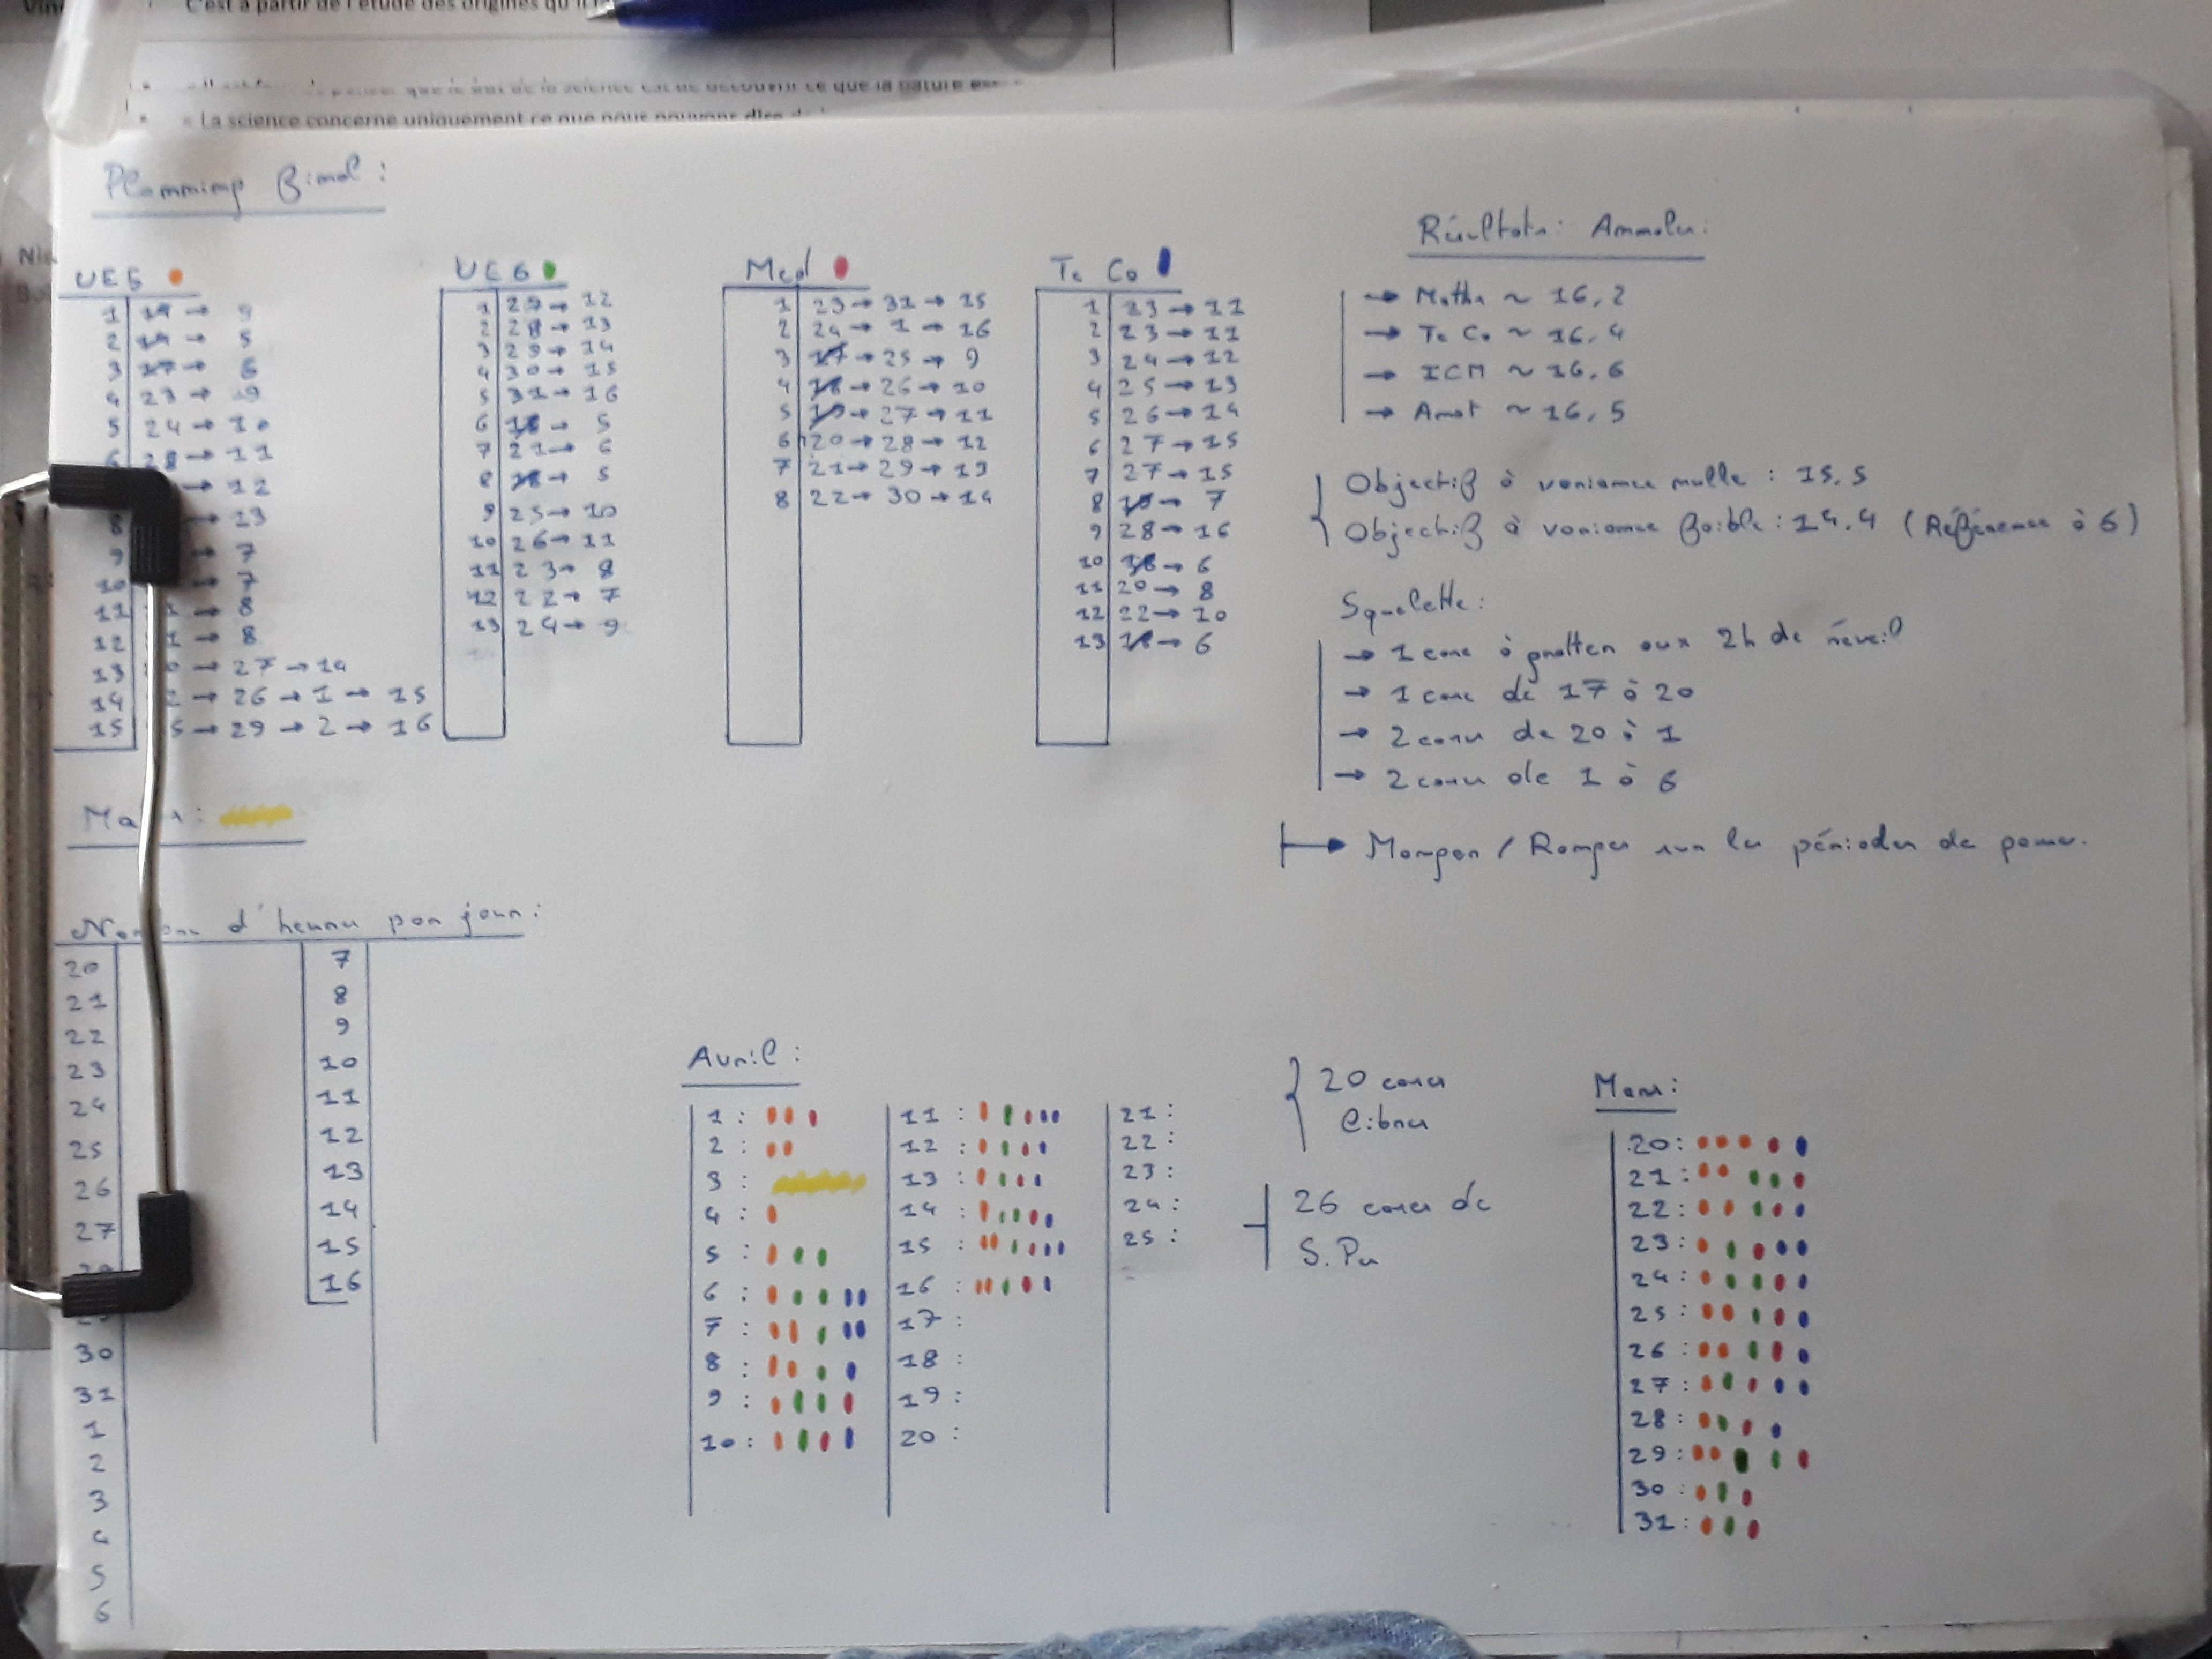 C'est à partir de l'étude des origines qu'il
« La science concerne uniquement ce que nous pouvons dire
Planning Final :
UE5
1 19 → 9
2 19 → 5
3 17 → 6
4 23 → 9
5 24 → 10
6 28 → 11
→ 12
8 → 13
9 → 7
10 → 7
11 1 → 8
12 1 → 8
13 0 → 27 → 14
14 2 → 26 → 1 → 15
15 5 → 29 → 2 → 16
UE6
1 27 → 12
2 28 → 13
3 29 → 14
4 30 → 15
5 31 → 16
6 18 → 5
7 21 → 6
8 18 → 5
9 25 → 10
10 26 → 11
11 23 → 8
12 22 → 7
13 24 → 9
Med
1 23 → 31 → 15
2 24 → 1 → 16
3 17 → 25 → 9
4 18 → 26 → 10
5 19 → 27 → 11
6 20 → 28 → 12
7 21 → 29 → 13
8 22 → 30 → 14
Te Co
1 23 → 11
2 23 → 11
3 24 → 12
4 25 → 13
5 26 → 14
6 27 → 15
7 27 → 15
8 19 → 7
9 28 → 16
10 18 → 6
11 20 → 8
12 22 → 10
13 18 → 6
Résultats : Annales :
→ Maths ~ 16,2
→ Te Co ~ 16,4
→ ICM ~ 16,6
→ Anat ~ 16,5
Objectif à variance nulle : 15,5
Objectif à variance faible : 14,4 (Référence à 6)
Squelette :
→ 1 cours à gratter aux 2h de réveil
→ 1 cours de 17 à 20
→ 2 cours de 20 à 1
→ 2 cours de 1 à 6
→ Manger / Ranger sur les périodes de pause.
Nombre d'heures par jour :
20
21
22
23
24
25
26
27
29
30
31
1
2
3
4
5
6
7
8
9
10
11
12
13
14
15
16
Avril :
1 :
2 :
3 :
4 :
5 :
6 :
7 :
8 :
9 :
10 :
11 :
12 :
13 :
14 :
15 :
16 :
17 :
18 :
19 :
20 :
21 :
22 :
23 :
24 :
25 :
20 cours
libres
26 cours de
S.Pu
Mars :
20 :
21 :
22 :
23 :
24 :
25 :
26 :
27 :
28 :
29 :
30 :
31 :